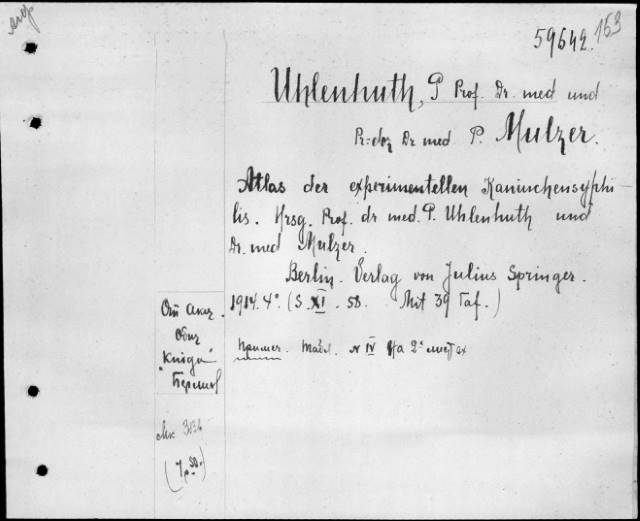 59642. 153
Uhlenhuth, P Prof. Dr. med und
Pr=doz Dr med P. Mulzer.
Atlas der experimentellen Kaninchensyphi
lis. Hrsg. Prof. dr med. P. Uhlenhuth und
Dr. med Mulzer.
Berlin. Verlag von Julius Springer.
1914. 4°. (S. XI. 58. Mit 39 Taf.)
Примеч. Табл. № IV на 2х
От Акц.
Общ
"Книга"
Берлин
(7р 50.)